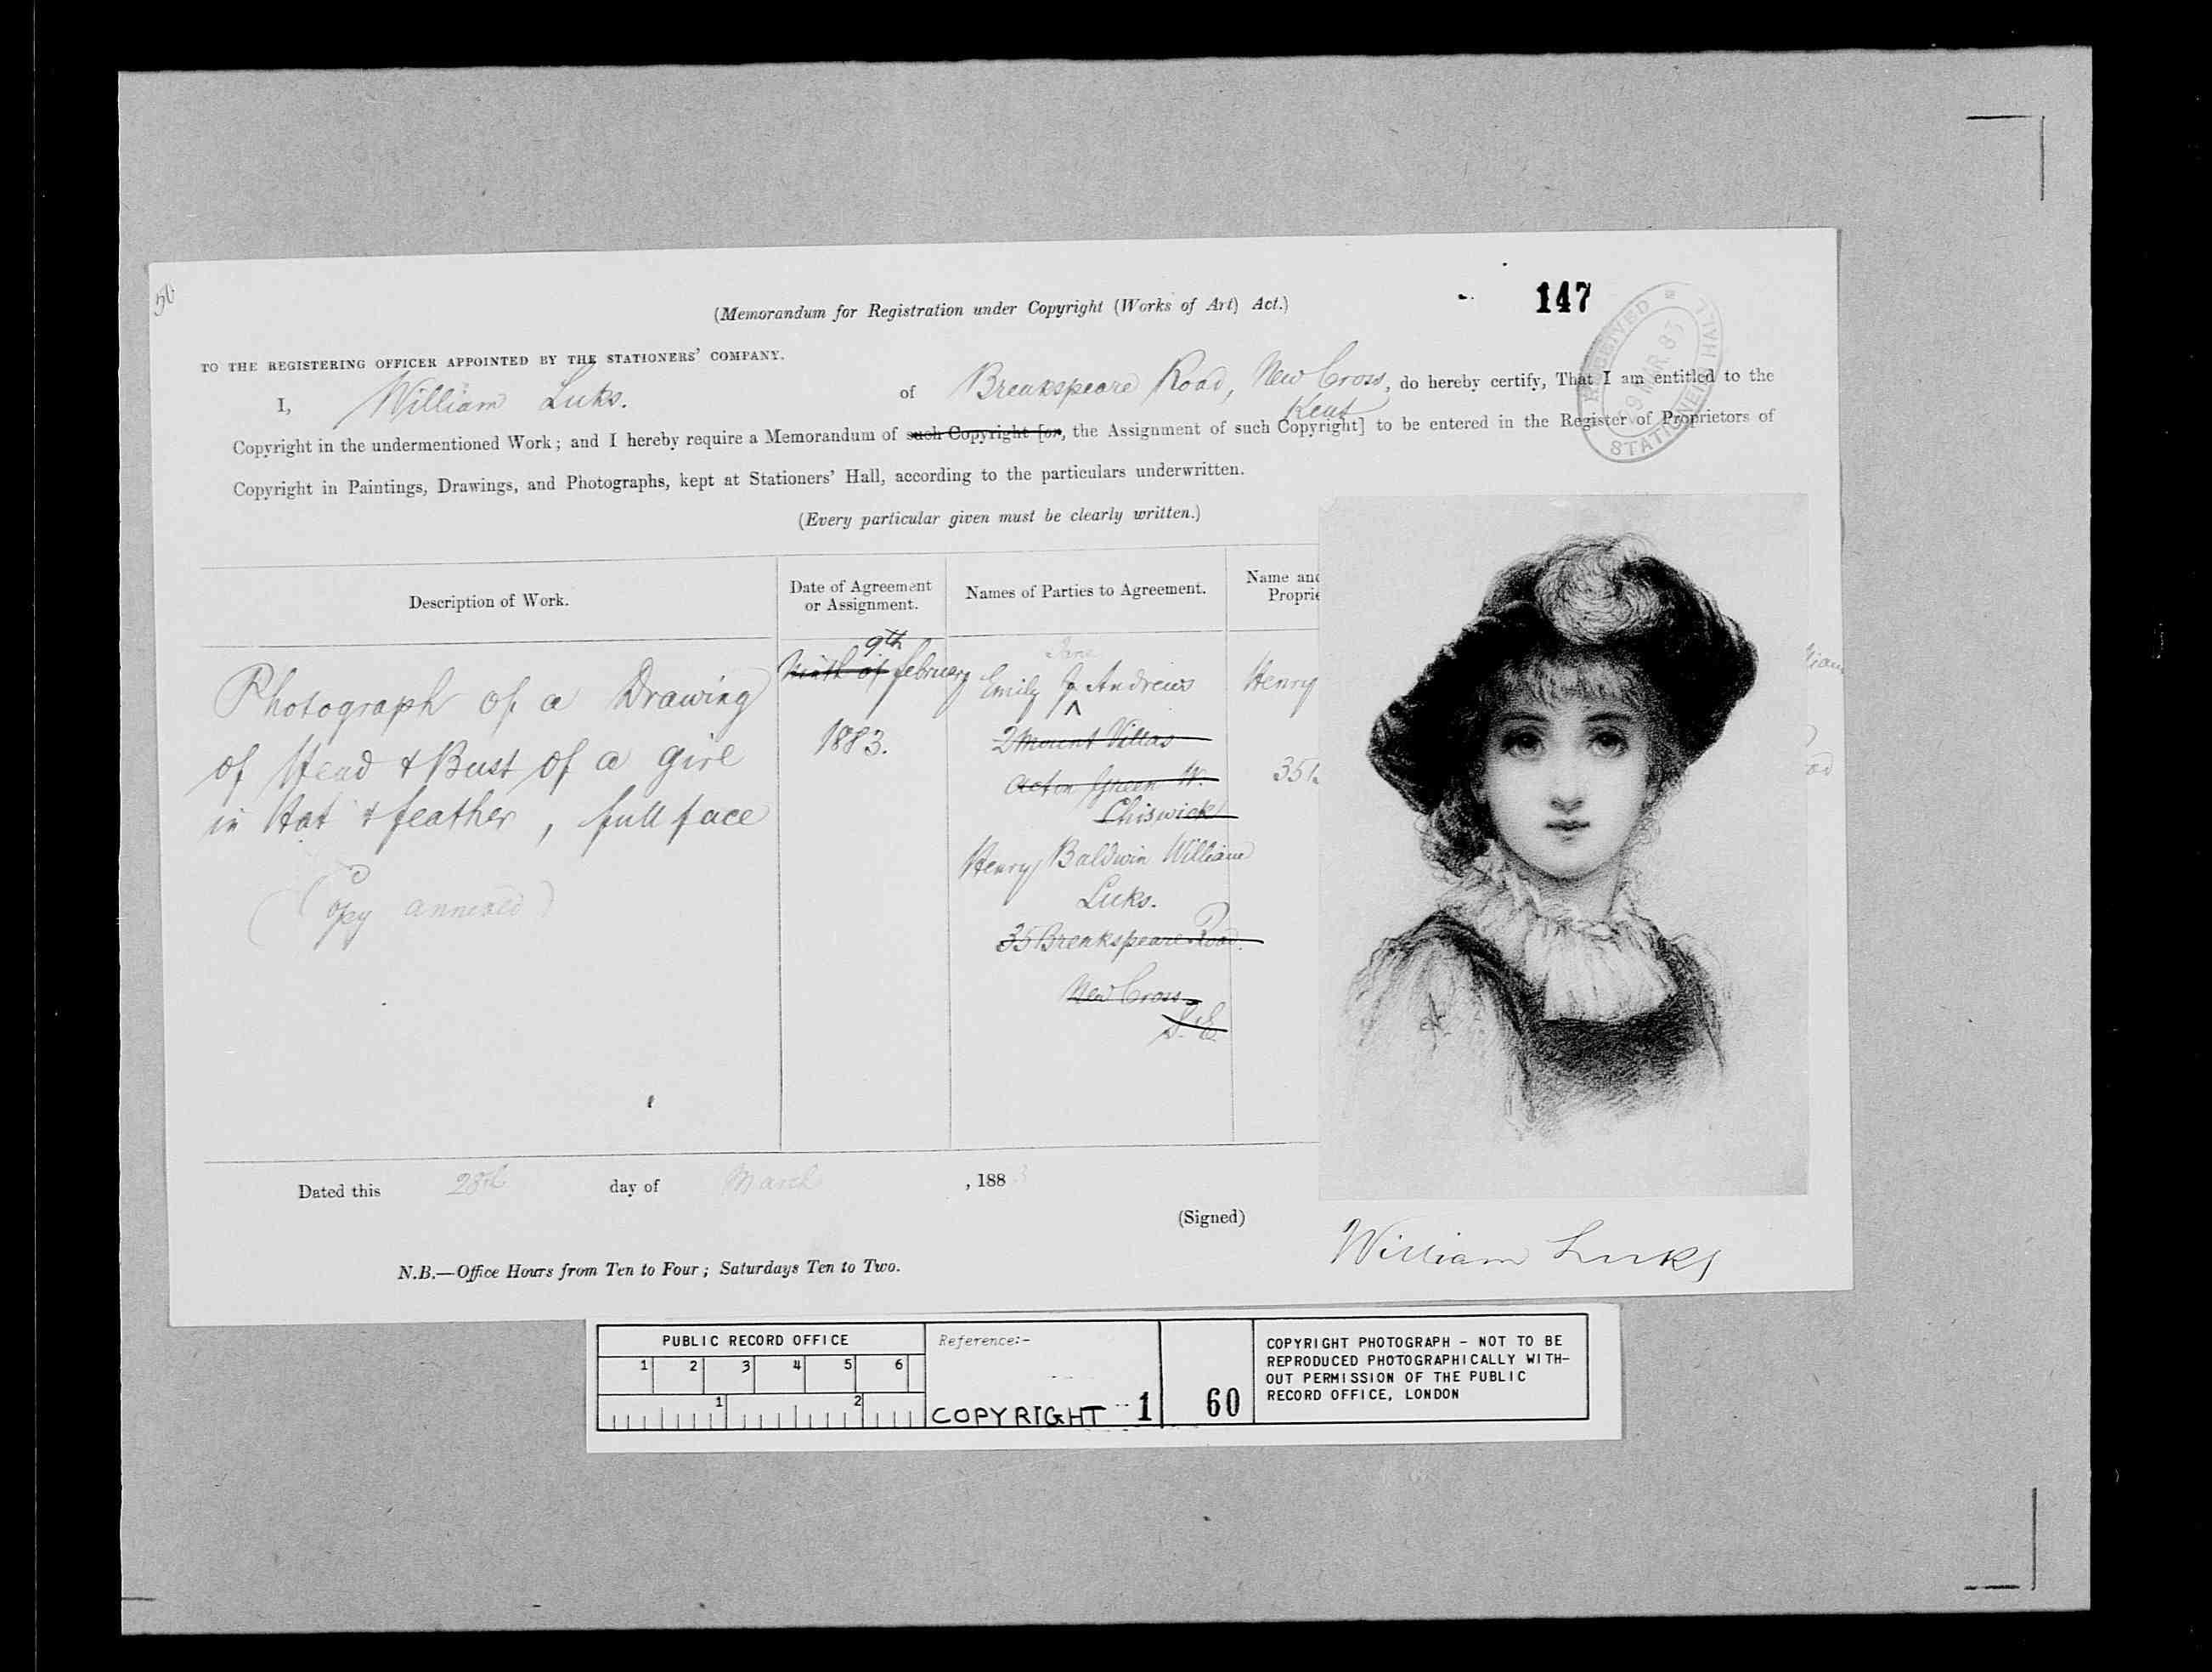 50
(Memorandum for Registration under Copyright (Works of Art) Act.)
147
RECEIVED
29 MAR. 83
STATIONERS HALL
TO THE REGISTERING OFFICER APPOINTED BY THE STATIONERS' COMPANY.
I, William Luks. of Breakspeare Road, New Cross, do hereby certify, That I am entitled to the
Kent
Copyright in the undermentioned Work; and I hereby require a Memorandum of such Copyright [or, the Assignment of such Copyright] to be entered in the Register of Proprietors of
Copyright in Paintings, Drawings, and Photographs, kept at Stationers' Hall, according to the particulars underwritten.
(Every particular given must be clearly written.)
Description of Work.
Photograph of a Drawing
of Head & Bust of a girl
in Hat & feather, full face
(Copy annexed)
Date of Agreement
or Assignment.
9th
Ninth of february
1883.
Names of Parties to Agreement.
Jane
Emily J Andrews
2 Mount Villas
Acton Green W.
Chiswick
Henry Baldwin William
Luks.
35 Breakspeare Road.
New Cross
S.E.
Name and
Proprie
Henry
35
Dated this 28th day of March, 1883
(Signed)
William Luks
N.B.—Office Hours from Ten to Four; Saturdays Ten to Two.
PUBLIC RECORD OFFICE
1 2 3 4 5 6
1 2
Reference:-
COPYRIGHT 1
60
COPYRIGHT PHOTOGRAPH - NOT TO BE
REPRODUCED PHOTOGRAPHICALLY WITH-
OUT PERMISSION OF THE PUBLIC
RECORD OFFICE, LONDON